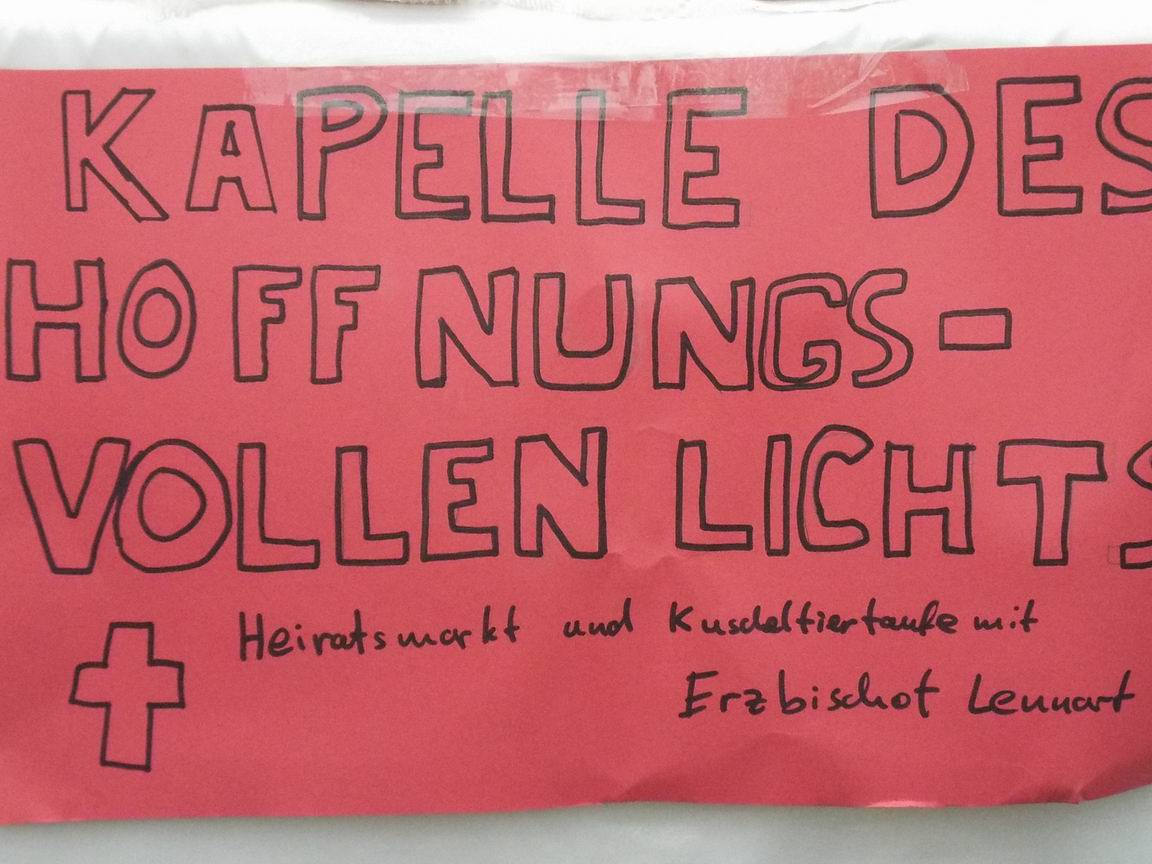 KAPELLE DES
HOFFNUNGS-
VOLLEN LICHTS
Heiratsmarkt und Kuscheltiertaufe mit
Erzbischof Lennart